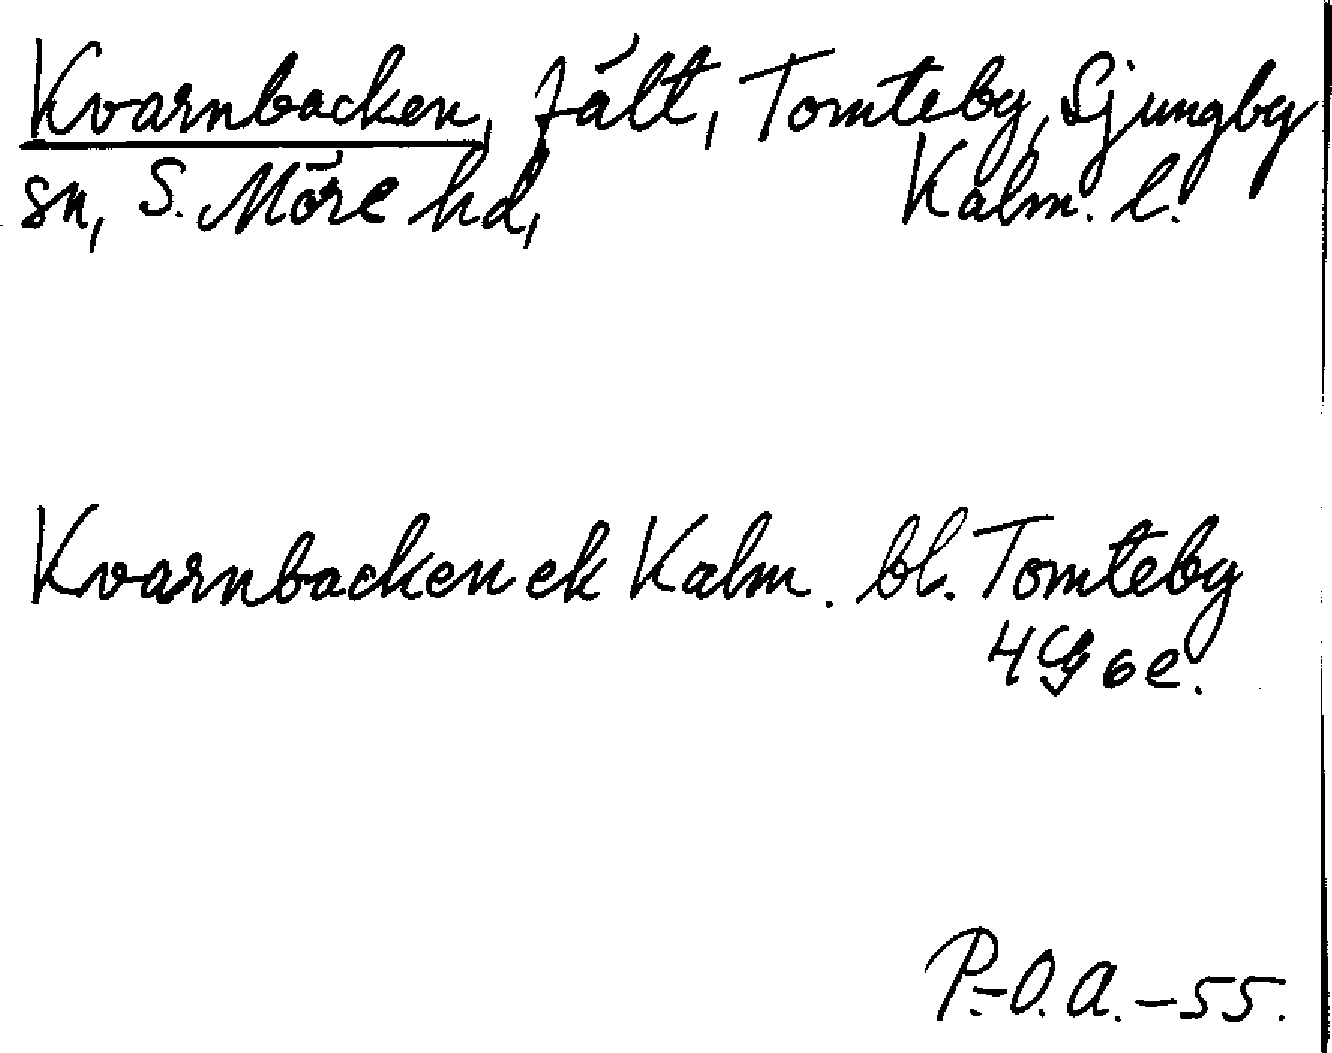 Kvarnbacken, fält, Tomteby, Ljungby
sn, S. Möre hd, Kalm. l.
Kvarnbacken ek Kalm. bl. Tomteby
4G 6e.
P.-O.A.-55.